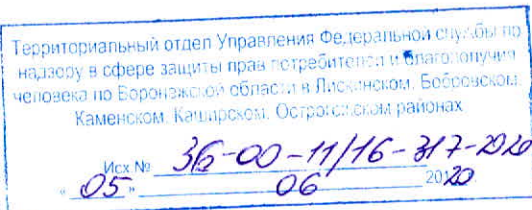 Территориальный отдел Управления Федеральной службы по
надзору в сфере защиты прав потребителей и благополучия
человека по Воронежской области в Лискинском, Бобровском,
Каменском, Каширском, Острогожском районах
Исх.№ 36-00-11/16-317-2020
« 05 » 06 2020